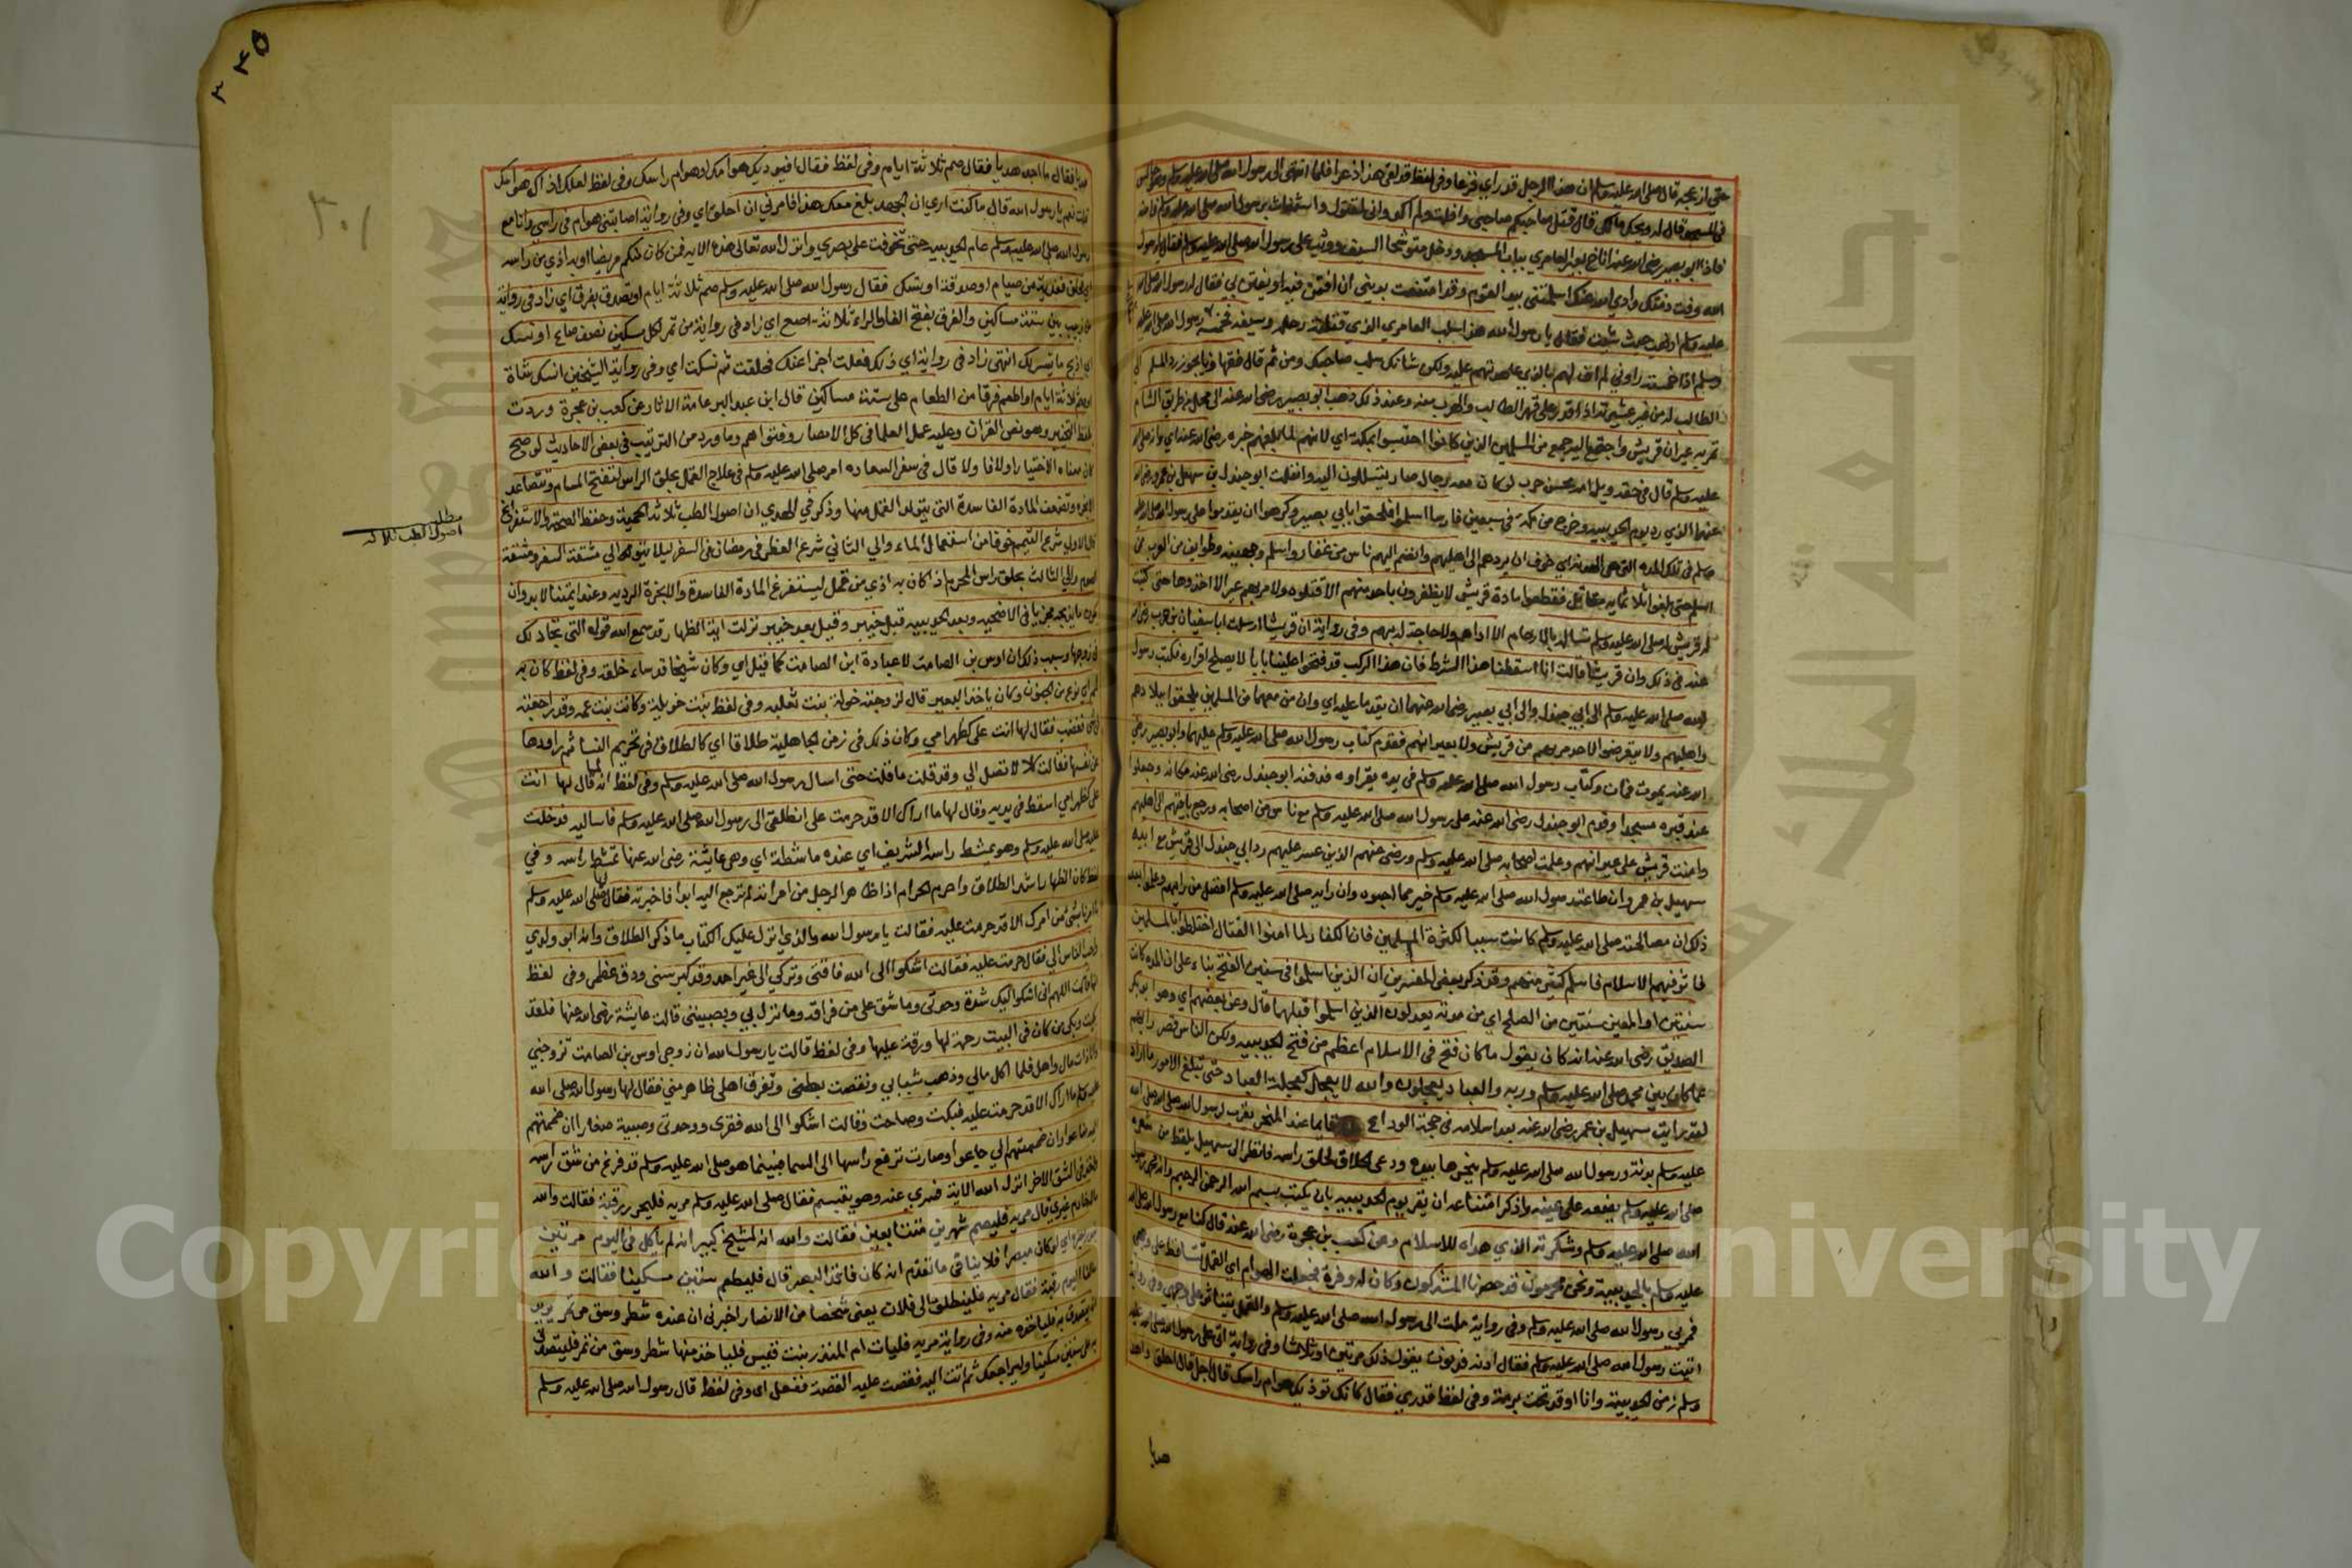 حتى ازعجه قال صلى الله عليه وسلم ان هذا الرجل قد راي فزعا وفي لفظ قد لقي هذا ذعرا فلما انتهى الى رسول الله صلى الله عليه وسلم وهو جالس
في المسجد قال له ويحك مالك قال قتل صاحبكم صاحبي وافلت منه ولم اكد واني لمقتول واستغاث برسول الله صلى الله عليه وسلم فامنه
فاذا ابو بصير رضي الله عنه اناخ بعير العامري بباب المسجد ودخل متوشحا السيف ووثب على رسول الله صلى الله عليه وسلم فقال يا رسول
الله وفت ذمتك وادي الله عنك اسلمتني بيد القوم وقد امتنعت بديني ان افتن فيه او يفتن بي فقال له رسول الله صلى الله
عليه وسلم اذهب حيث شيت فقال يا رسول الله هذا سلب العامري الذي قتلته رحله وسيفه فخمسه فقال رسول الله صلى الله عليه
وسلم اذا خمسته راوني لم اوف لهم بالذي عاهدتهم عليه ولكن شانك بسلب صاحبك ومن ثم قال فقهاونا يجوز رد المسلم الى
الطالب له من غير عشيرته اذا قدر على قهر الطالب والهرب منه وعند ذلك ذهب ابو بصير رضي الله عنه الى محل من طريق الشام
تمر به عيرات قريش واجتمع اليه جمع من المسلمين الذين كانوا احتبسوا بمكة اي لانهم لما بلغهم خبره رضي الله عنه اي وانه صلى الله
عليه وسلم قال في حقه ويل امه محش حرب لو كان معه رجال صار يتسللون اليه وانفلت ابو جندل بن سهيل بن عمرو رضي الله
عنهما الذي رده يوم الحديبية وخرج من مكة في سبعين فارسا اسلموا فلحقوا بابي بصير وكرهوا ان يقدموا على رسول الله صلى الله عليه
وسلم في تلك المدة التي هي الهدنة اي خوف ان يردهم الى اهليهم وانضم اليهم ناس من غفار واسلم وجهينه وطوايف من العرب ممن
اسلم حتى بلغوا ثلاثماية مقاتل فقطعوا مادة قريش لا يظفرون باحد منهم الا قتلوه ولا مر بهم عير الا اخذوها حتى كتبت
له قريش له صلى الله عليه وسلم تساله بالارحام الا اواهم ولا حاجة لهم بهم وفي رواية ان قريشا ارسلت ابا سفيان بن حرب رضي الله
عنه في ذلك وان قريشا قالت انا اسقطنا هذا الشرط فان هذا الركب قد فتحوا علينا بابا لا يصلح اقراره فكتب رسول
الله صلى الله عليه وسلم الى ابي جندل والى ابي بصير رضي الله عنهما ان يقدما عليه اي وان من معهما من المسلمين يلحقوا ببلادهم
واهليهم ولا يتعرضوا لاحد مر بهم من قريش ولا بعيراتهم فقدم كتاب رسول الله صلى الله عليه وسلم عليهما وابو بصير رضي
الله عنه يموت فمات وكتاب رسول الله صلى الله عليه وسلم في يده يقراه فدفنه ابو جندل رضي الله عنه مكانه وجعلوا
عند قبره مسجدا وقدم ابو جندل رضي الله عنه على رسول الله صلى الله عليه وسلم مع ناس من اصحابه ورجع باقيهم الى اهليهم
وامنت قريش على عيراتهم وعلمت اصحابه صلى الله عليه وسلم ورضي عنهم الذين عسر عليهم رد ابي جندل الى قريش مع ابيه
سهيل بن عمرو ان طاعة رسول الله صلى الله عليه وسلم خير مما احبوه وان رايه صلى الله عليه وسلم افضل من رايهم وعلموا بعد
ذلك ان مصالحته صلى الله عليه وسلم كانت سببا لكثرة المسلمين فان الكفار لما امنوا القتال اختلطوا بالمسلمين
فاثر فيهم الاسلام فاسلم كثير منهم وقد ذكر بعض المفسرين ان الذين اسلموا في سنتين الفتح بناء على ان المدة كانت
سنتين او المعنى سنتين من الصلح اي من مدته يعدلون الذين اسلموا قبلهما قال وعن بعضهم اي وهو ابو بكر
الصديق رضي الله عنه انه كان يقول ما كان فتح في الاسلام اعظم من فتح الحديبية ولكن الناس قصر رايهم
عما كان بين محمد صلى الله عليه وسلم وربه والعباد يعجلون والله لا يعجل كعجلة العباد حتى تبلغ الامور ما اراد
لقد رايت سهيل بن عمرو رضي الله عنه بعد اسلامه في حجة الوداع قايما عند المنحر يقرب لرسول الله صلى الله
عليه وسلم بدنة ورسول الله صلى الله عليه وسلم ينحرها بيده ودعى الحلاق لحلق راسه فانظر الى سهيل يلقط من شعره
صلى الله عليه وسلم يضعه على عينه واذكر امتناعه ان يقر يوم الحديبية بان يكتب بسم الله الرحمن الرحيم وان محمدا رسول
الله صلى الله عليه وسلم وشكرت الذي هداه للاسلام وعن كعب بن عجرة رضي الله عنه قال كنا مع رسول الله صلى الله
عليه وسلم بالحديبية ونحن محرمون قد حصرنا المشركون وكان له وفرة فجعلت الهوام اي القمل تتساقط على وجهي
فمر بي رسول الله صلى الله عليه وسلم وفي رواية حملت الى رسول الله صلى الله عليه وسلم والقمل يتناثر على وجهي وفي رواية
اتيت رسول الله صلى الله عليه وسلم فقال ادنه فدنوت يقول ذلك مرتين او ثلاثا وفي رواية اتى على رسول الله صلى الله عليه
وسلم زمن الحديبية وانا اوقد تحت برمة وفي لفظ قدر لي فقال كانك توذيك هوام راسك قال اجل قال احلق واهد
هديا
٣٤٥
٣٠١
هديا فقال ما اجد هديا فقال صم ثلاثة ايام وفي لفظ فقال ايوذيك هوامك او هوام راسك وفي لفظ لعلك اذاك هوامك
قلت نعم يا رسول الله قال ما كنت اري ان الجهد بلغ معك هذا فامرني ان احلق اي وفي رواية اصابتني هوام في راسي وانا مع
رسول الله صلى الله عليه وسلم عام الحديبية حتى تخوفت على بصري وانزل الله تعالى هذه الاية فمن كان منكم مريضا او به اذي من راسه
اي فحلق ففدية من صيام او صدقة او نسك فقال رسول الله صلى الله عليه وسلم صم ثلاثة ايام او تصدق بفرق اي زاد في رواية
من زبيب بين ستة مساكين والفرق بفتح الفا والراء ثلاثة اصع اي زاد في رواية من تمر لكل مسكين نصف صاع او نسك
اي اذبح ما تيسر لك انتهى زاد في رواية اي ذلك فعلت اجزا عنك فحلقت ثم نسكت اي وفي رواية الشيخين انسك شاة
او صم ثلاثة ايام او اطعم فرقا من الطعام على ستة مساكين قال ابن عبد البر عامة الاثار عن كعب بن عجرة وردت
بلفظ التخيير وهو نص القران وعليه عمل العلما في كل الامصار وفتواهم وما ورد من الترتيب في بعض الاحاديث لو صح
كان معناه الاختيار اولا فاولا قال في سفر السعاده امر صلى الله عليه وسلم في علاج القمل بحلق الراس لتنفتح المسام وتتصاعد
الابخرة وتضعف المادة الفاسدة التي يتولد القمل منها وذكر في الهدي ان اصول الطب ثلاثة الحمية وحفظ الصحة والاستفراغ
مطلب
اصول الطب ثلاثة
فالى الاول شرع التيمم خوفا من استعمال الماء والى الثاني شرع الفطر في رمضان في السفر ليلا يتوالى مشقة السفر ومشقة
الصوم والى الثالث بحلق راس المحرم اذا كان به اذي من قمل ليستفرغ المادة الفاسدة والابخرة الردية وعند ايمتنا لابد وان
يكون ما يذبحه مجزيا في الاضحية وبعد الحديبية قبل خيبر وقيل بعد خيبر نزلت اية الظهار قد سمع الله قول التي تجادلك
في زوجها وسبب ذلك ان اوس بن الصامت لا عبادة ابن الصامت كما قيل اي وكان شيخا قد ساء خلقه وفي لفظ كان به
لمم اي نوع من الجنون وكان ياخذ البعير قال لزوجته خولة بنت ثعلبة وفي لفظ بنت خويلد وكانت بنت عمه وقد راجعته
في شي فغضب فقال لها انت علي كظهر امي وكان ذلك في زمن الجاهلية طلاقا اي كالطلاق في تحريم النسا ثم راودها
عن نفسها فقالت كلا لا تصل الي وقد قلت ما قلت حتى اسال رسول الله صلى الله عليه وسلم وفي لفظ انه لما قال لها انت
علي كظهر امي اسقط في يديه وقال لها ما اراك الا قد حرمت علي انطلقي الى رسول الله صلى الله عليه وسلم فاساليه فدخلت
عليه صلى الله عليه وسلم وهو يمشط راسه الشريف اي عنده ماشطة اي وهي عايشة رضي الله عنها تمشط راسه وفي
لفظ كان الظهار اشد الطلاق واحرم الحرام اذا ظاهر الرجل من امراته لم ترجع اليه ابدا فاخبرته فقال لها صلى الله عليه وسلم
ما امرنا بشي من امرك الا قد حرمت عليه فقالت يا رسول الله والذي انزل عليك الكتاب ما ذكر الطلاق وانه ابو ولدي
واحب الناس الي فقال حرمت عليه فقالت اشكوا الى الله فاقتي وتركي الى غير احد وقد كبر سني ودق عظمي وفي لفظ
انها قالت اللهم اني اشكوا اليك شدة وحدتي وما شق علي من فراقه وما نزل بي وبصبيتي قالت عايشة رضي الله عنها فلقد
بكيت وبكى من كان في البيت رحمة لها ورقة عليها وفي لفظ قالت يا رسول الله ان زوجي اوس بن الصامت تزوجني
وانا ذات مال واهل فلما اكل مالي وذهب شبابي ونفضت بطني وتفرق اهلي ظاهر مني فقال لها رسول الله صلى الله
عليه وسلم ما اراك الا قد حرمت عليه فبكت وصاحت وقالت اشكوا الى الله فقري ووحدتي وصبية صغارا ان ضممتهم
اليه ضاعوا وان ضممتهم الي جاعوا وصارت ترفع راسها الى السما فبينما هو صلى الله عليه وسلم قد فرغ من شق راسه
واخذ في الشق الاخر انزل الله الاية فسري عنه وهو يتبسم فقال صلى الله عليه وسلم مريه فليحرر رقبة فقالت والله
ماله خادم غيري قال مريه فليصم شهرين متتابعين فقالت والله انه لشيخ كبير انه لم ياكل في اليوم مرتين
يندر بصره اي لو كان مبصرا فلا ينافي ما تقدم انه كان فاقد البصر قال فليطعم ستين مسكينا فقالت والله
مالنا اليوم وقية فقال مريه فلينطلق الى فلان يعني شخصا من الانصار اخبرني ان عنده شطر وسق من تمر يريد
ان يتصدق به فلياخذه منه وفي رواية مريه فليات ام المنذر بنت قيس فلياخذ منها شطر وسق من تمر فليتصدق
به على ستين مسكينا وليراجعك ثم اتت اليه فقصت عليه القصة ففعل اي وفي لفظ قال رسول الله صلى الله عليه وسلم
Copyright © King Saud University